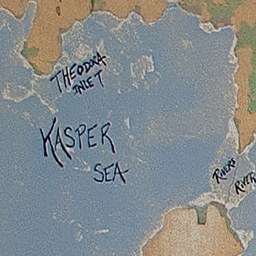 THEODORA
INLET
KASPER
SEA
RIVERS
RIVER